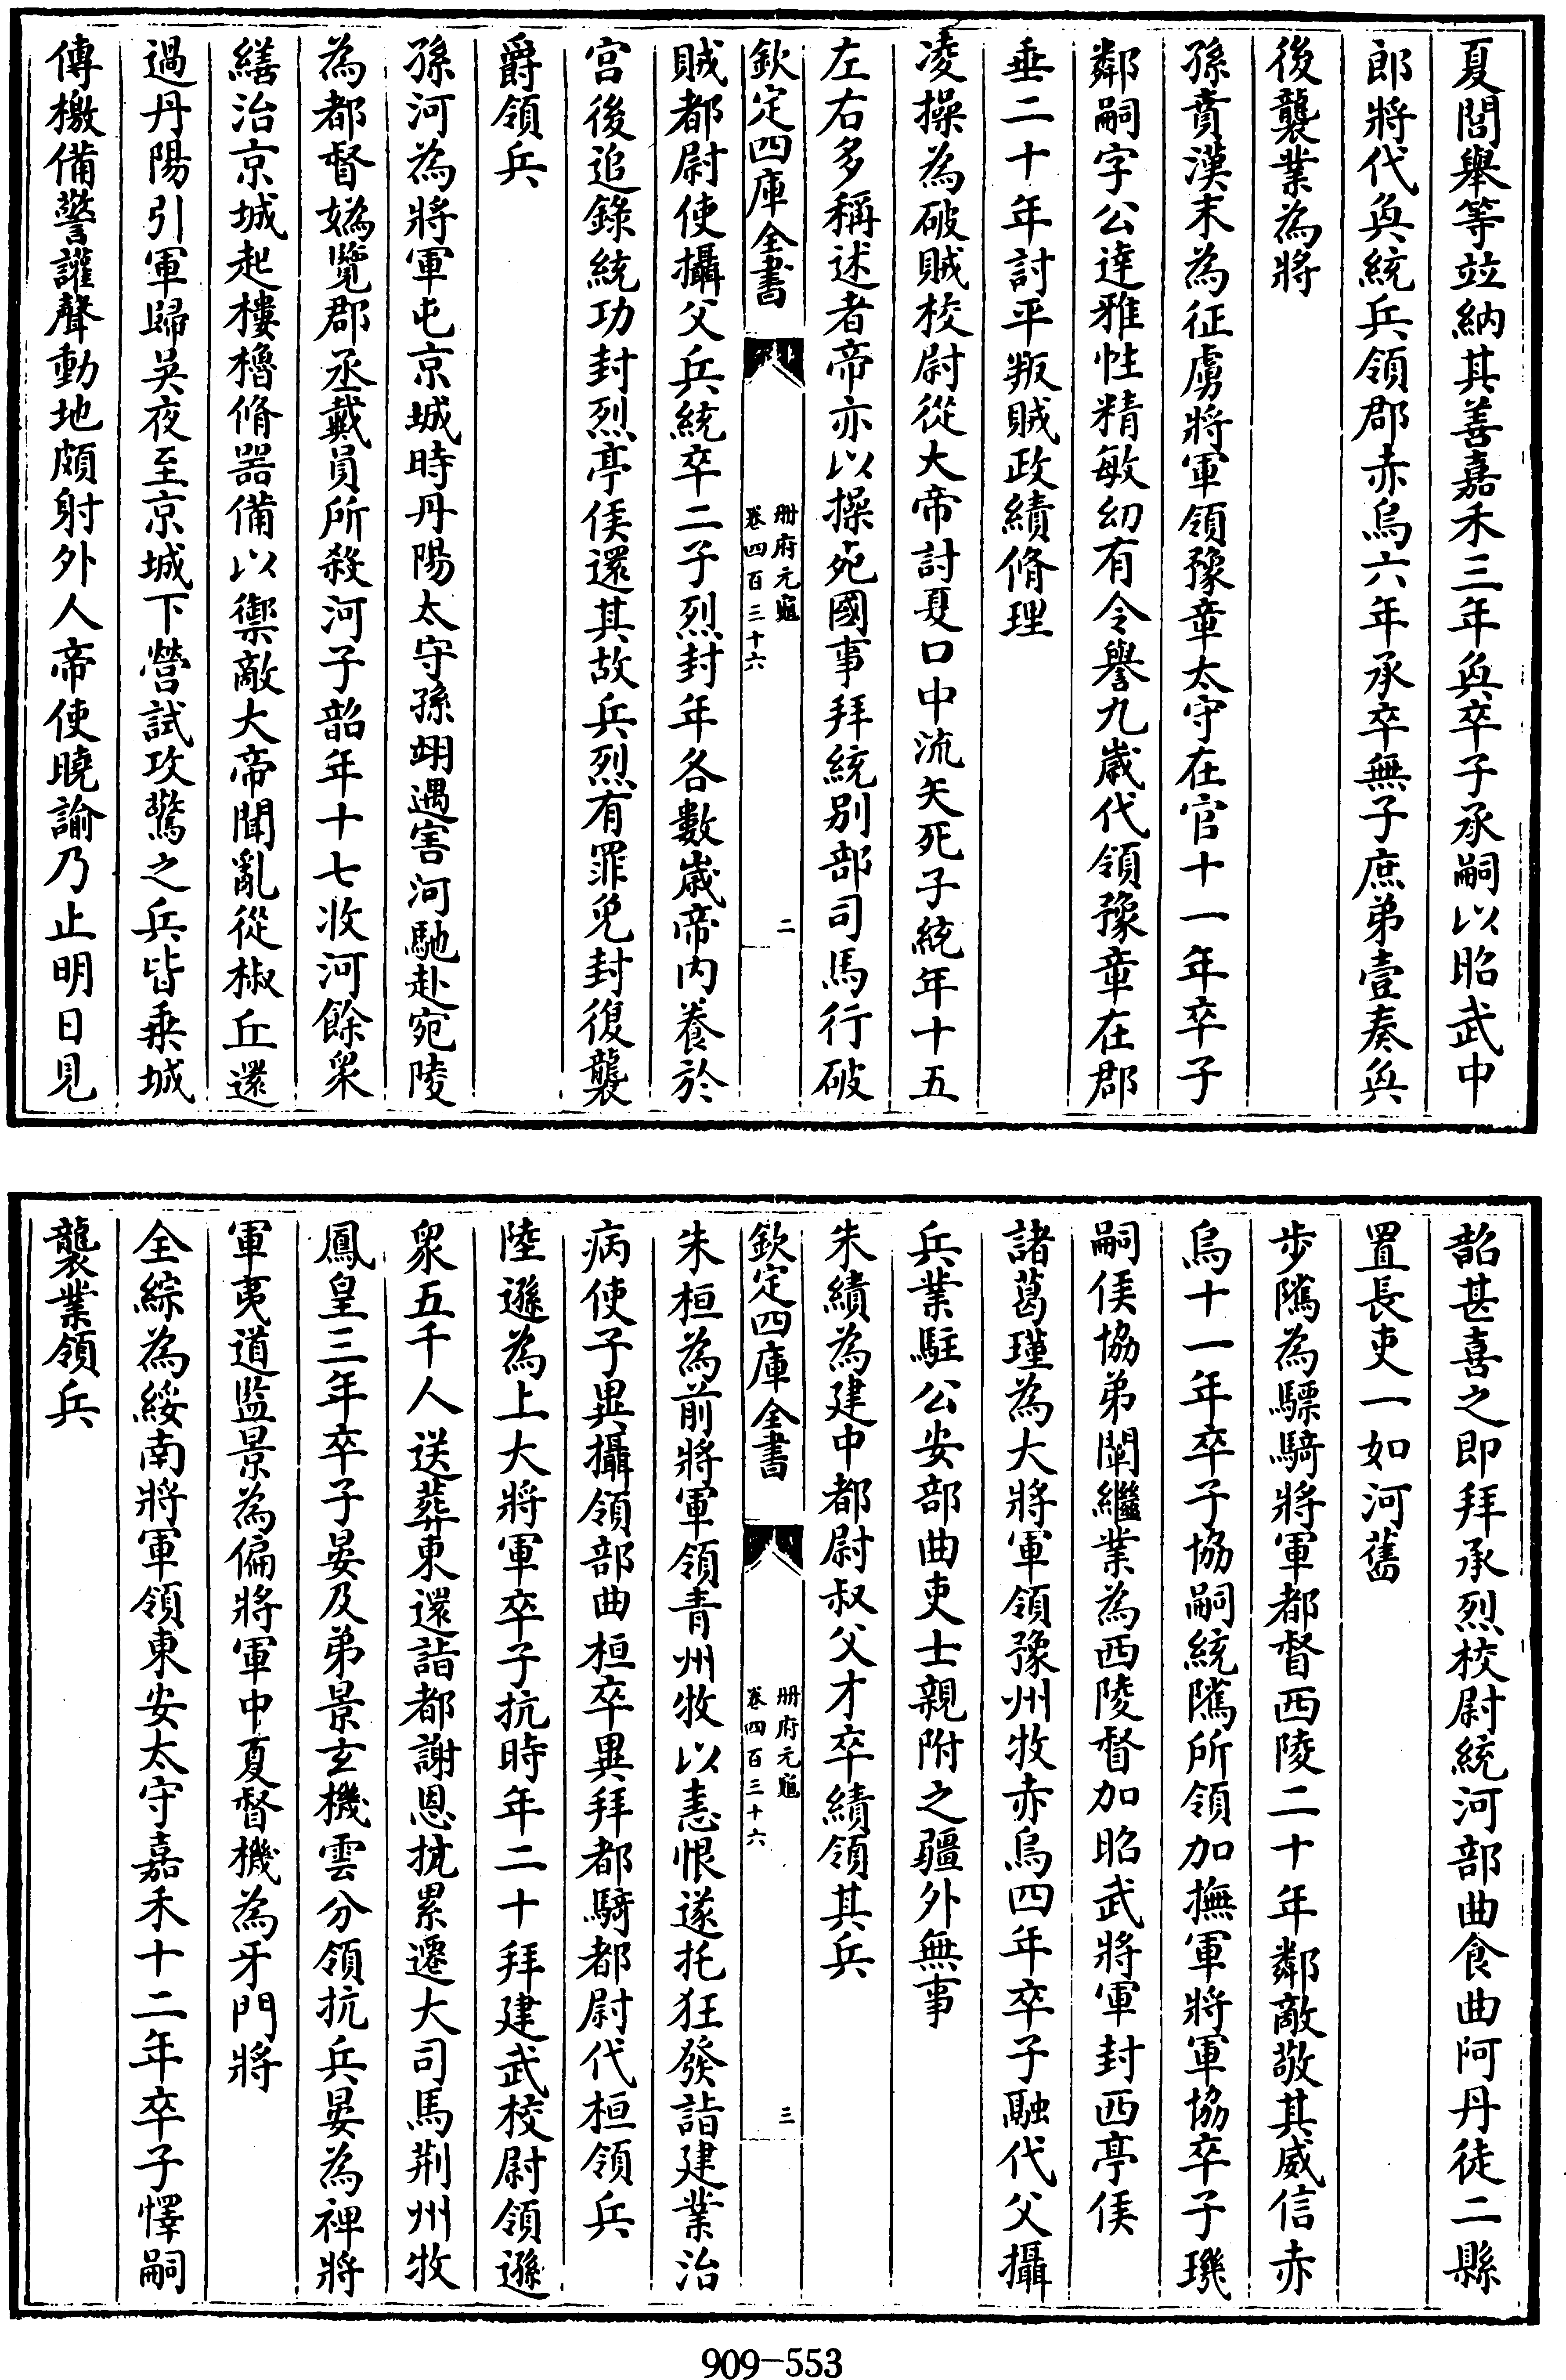 夏閻舉等竝納其善嘉禾三年奐卒子承嗣以昭武中
郎將代奐統兵領郡赤烏六年承卒無子庶弟壹奏奐
後襲業為將
孫賁漢末為征虜將軍領豫章太守在官十一年卒子
鄰嗣字公達雅性精敏幼有令譽九歲代領豫章在郡
垂二十年討平叛賊政績脩理
凌操為破賊校尉從大帝討夏口中流矢死子統年十五
左右多稱述者帝亦以操死國事拜統別部司馬行破
欽定四庫全書
冊府元龜
卷四百三十六
二
賊都尉使攝父兵統卒二子烈封年各數歲帝內養於
宮後追錄統功封烈亭侯還其故兵烈有罪免封復襲
爵領兵
孫河為將軍屯京城時丹陽太守孫翊遇害河馳赴宛陵
為都督媯覽郡丞戴員所殺河子韶年十七收河餘眾
繕治京城起樓櫓脩器備以禦敵大帝聞亂從椒丘還
過丹陽引軍歸吳夜至京城下營試攻驚之兵皆乘城
傳檄備警讙聲動地頗射外人帝使曉諭乃止明日見
韶甚喜之即拜承烈校尉統河部曲食曲阿丹徒二縣
置長吏一如河舊
步隲為驃騎將軍都督西陵二十年鄰敵敬其威信赤
烏十一年卒子協嗣統隲所領加撫軍將軍協卒子璣
嗣侯協弟闡繼業為西陵督加昭武將軍封西亭侯
諸葛瑾為大將軍領豫州牧赤烏四年卒子融代父攝
兵業駐公安部曲吏士親附之疆外無事
朱績為建中都尉叔父才卒績領其兵
欽定四庫全書
冊府元龜
卷四百三十六
三
朱桓為前將軍領青州牧以恚恨遂托狂發詣建業治
病使子異攝領部曲桓卒異拜都騎都尉代桓領兵
陸遜為上大將軍卒子抗時年二十拜建武校尉領遜
眾五千人送葬東還詣都謝恩抗累遷大司馬荆州牧
鳳皇三年卒子晏及弟景玄機雲分領抗兵晏為裨將
軍夷道監景為偏將軍中夏督機為牙門將
全綜為綏南將軍領東安太守嘉禾十二年卒子懌嗣
襲業領兵
909-553